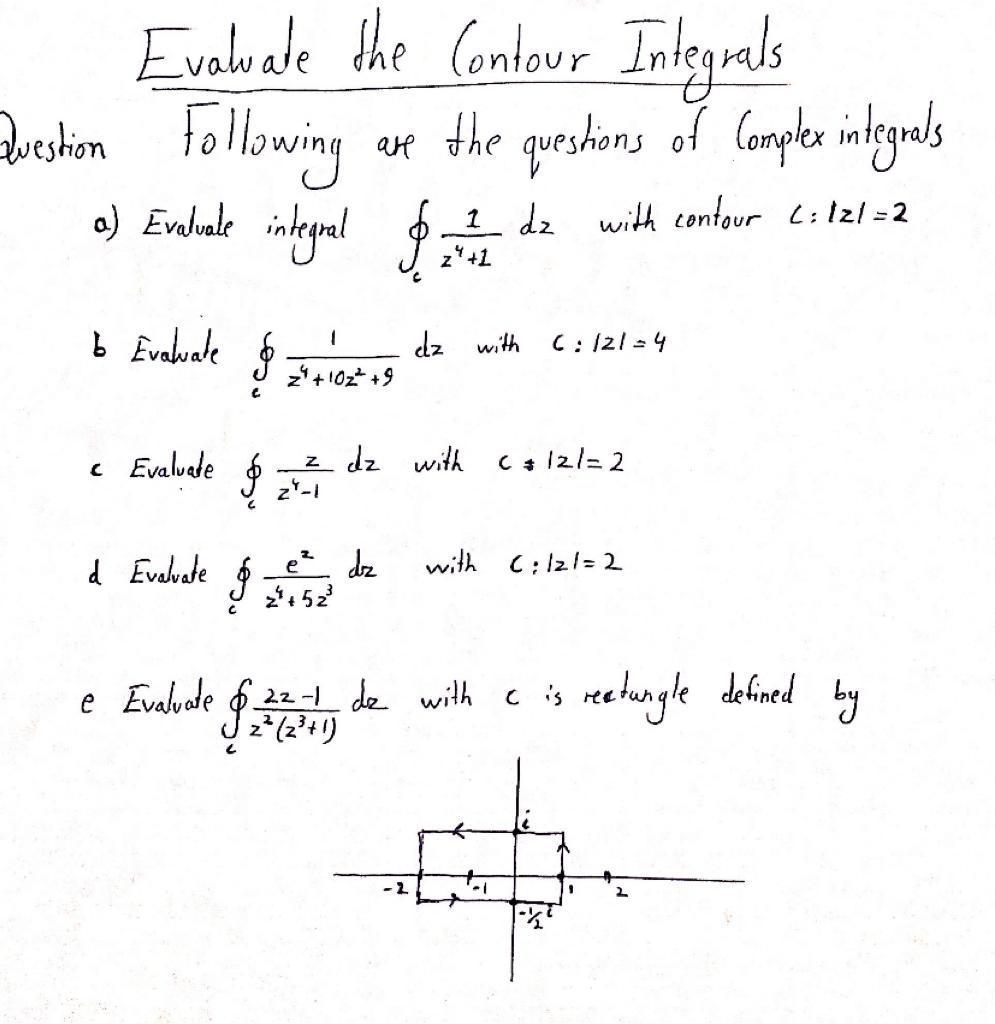 Evaluate the Contour Integrals
Question Following are the questions of Complex integrals
a) Evaluate integral ∮_c 1/(z⁴+1) dz with contour C: |z| = 2
b Evaluate ∮_c 1/(z⁴+10z²+9) dz with C: |z| = 4
c Evaluate ∮_c z/(z⁴-1) dz with C: |z| = 2
d Evaluate ∮_c e^z/(z⁴+5z³) dz with C: |z| = 2
e Evaluate ∮_c (2z-1)/(z²(z³+1)) dz with c is rectangle defined by
i
-2 -1 1 2
-½i